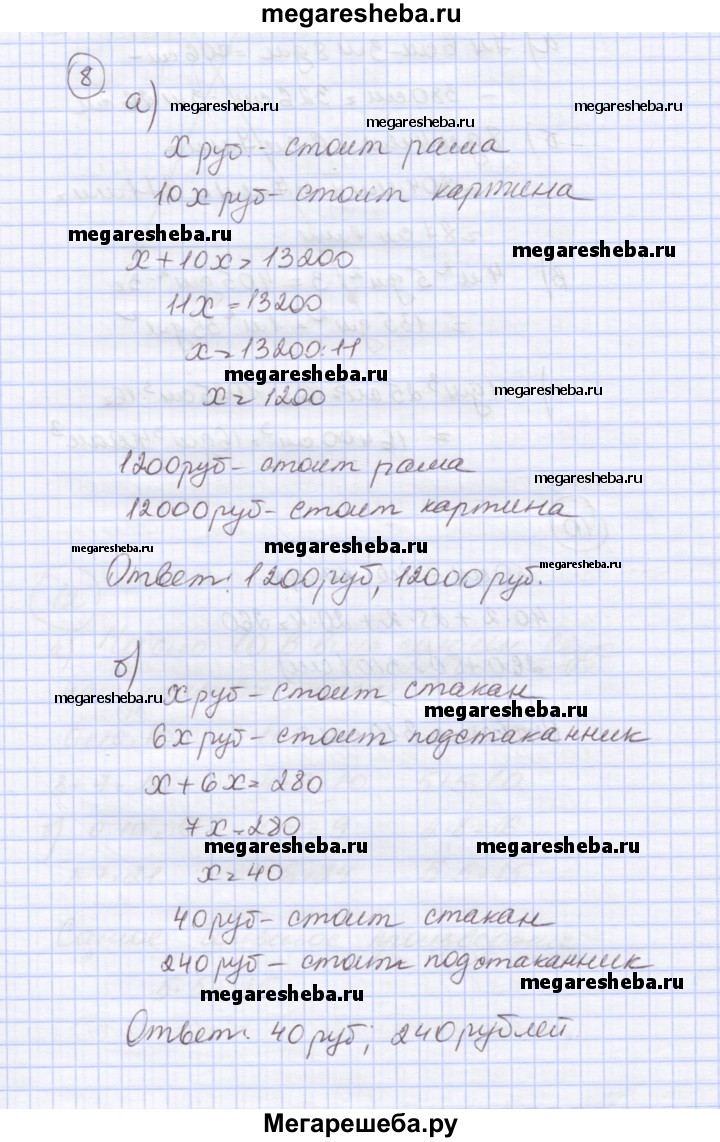 megaresheba.ru
8
а)
megaresheba.ru
megaresheba.ru
megaresheba.ru
х руб - стоит рама
10х руб - стоит картина
megaresheba.ru
х + 10х = 13200
megaresheba.ru
11х = 13200
х = 13200:11
megaresheba.ru
х = 1200
megaresheba.ru
1200 руб - стоит рама
megaresheba.ru
12000 руб - стоит картина
megaresheba.ru
megaresheba.ru
megaresheba.ru
Ответ: 1200 руб, 12000 руб.
б)
х руб - стоит стакан
megaresheba.ru
megaresheba.ru
6х руб - стоит подстаканник
х + 6х = 280
7х = 280
megaresheba.ru
megaresheba.ru
х = 40
40 руб - стоит стакан
240 руб - стоит подстаканник
megaresheba.ru
megaresheba.ru
Ответ: 40 руб; 240 рублей
Мегарешеба.ру